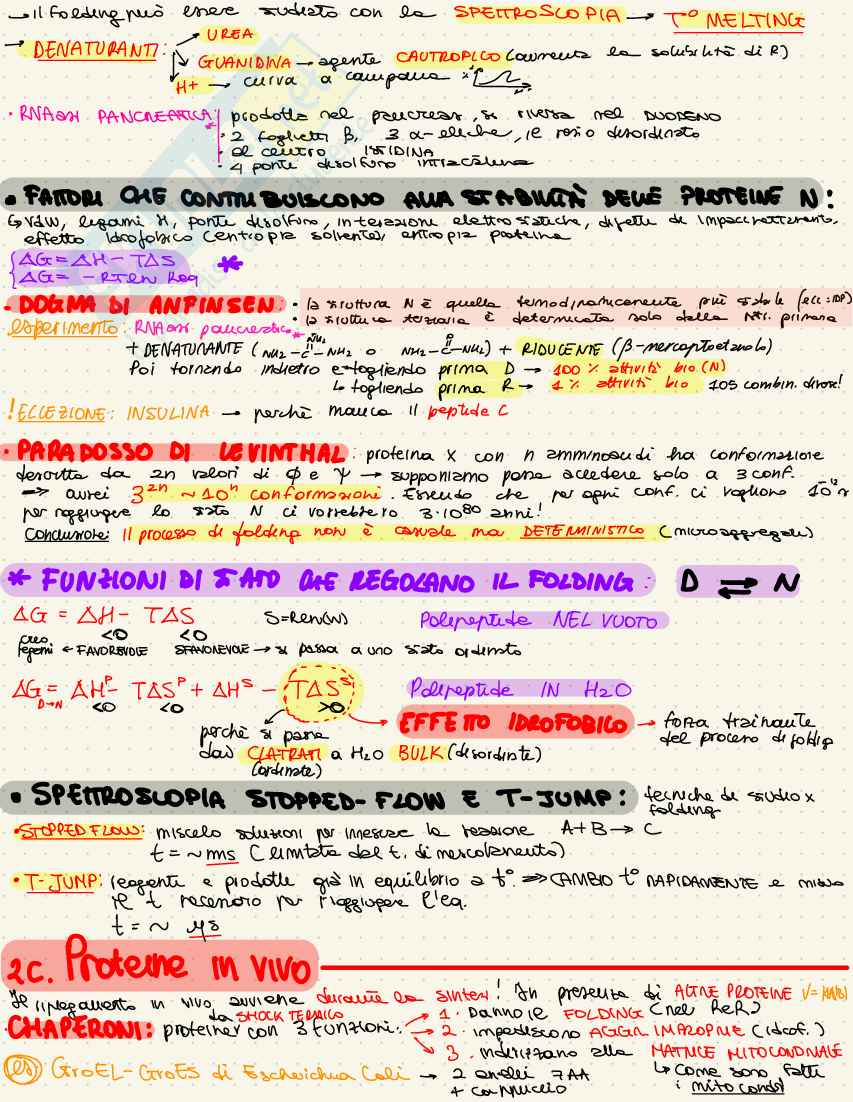 → il folding può essere studiato con la SPETTROSCOPIA → T° MELTING
→ DENATURANTI: UREA
GUANIDINA → agente CAUTROPICO (aumenta la solubilità di R)
H+ → curva a campana
• RNAasi PANCREATICA: prodotta nel pancreas, si riversa nel DUODENO
• 2 foglietti β, 3 α-eliche, il resto disordinato
• al centro ISTIDINA
• 4 ponte disolfuro intracatena
• FATTORI CHE CONTRIBUISCONO ALLA STABILITÀ DELLE PROTEINE N:
↳ VdW, legami H, ponte disolfuro, interazione elettrostatiche, difetti di impacchettamento,
effetto idrofobico (entropia solvente), entropia proteina
ΔG = ΔH - TΔS *
ΔG = -RTln Keq
• DOGMA DI ANFINSEN: • la struttura N è quella termodinamicamente più stabile (ecc: IDP)
• la struttura terziaria è determinata solo dalla str. primaria
esperimento: RNAasi pancreatica *
+ DENATURANTE (NH2-C-NH2 o NH2-C-NH2) + RIDUCENTE (β-mercaptoetanolo)
NH2+ O
Poi tornando indietro e togliendo prima D → 100% attività bio (N)
↳ togliendo prima R → 1% attività bio 105 combin. diverse!
! ECCEZIONE: INSULINA → perchè manca il peptide C
• PARADOSSO DI LEVINTHAL: proteina X con n amminoacidi ha conformazione
descritta da 2n valori di φ e ψ → supponiamo possa accedere solo a 3 conf.
=> avrei 3²ⁿ ~ 10ⁿ conformazioni. Essendo che per ogni conf. ci vogliono 10⁻¹² s
per raggiungere lo stato N ci vorrebbero 3·10⁸⁰ anni!
Conclusione: il processo di folding non è casuale ma DETERMINISTICO (microaggregati)
* FUNZIONI DI STATO CHE REGOLANO IL FOLDING: D ⇌ N
ΔG = ΔH - TΔS S=Rln(W) Polipeptide NEL VUOTO
<0 <0
creo legami ← FAVOREVOLE SFAVOREVOLE → si passa a uno stato ordinato
ΔG = ΔHᴾ - TΔSᴾ + ΔHˢ - TΔSˢ Polipeptide IN H2O
D→N <0 <0 >0
EFFETTO IDROFOBICO → forza trainante
perchè si passa del processo di folding
dai CLATRATI a H2O BULK (disordinate)
(ordinate)
• SPETTROSCOPIA STOPPED-FLOW E T-JUMP: tecniche di studio x
folding
• STOPPED FLOW: miscelo soluzioni per innescare la reazione A+B → C
t = ~ ms (limitata dal t. di mescolamento)
• T-JUMP: reagenti e prodotti già in equilibrio a t°. => CAMBIO t° RAPIDAMENTE e misuro
il t necessario per riaggiungere l'eq.
t = ~ μs
2C. Proteine IN VIVO
Il ripiegamento in vivo avviene durante la sintesi! In presenza di ALTRE PROTEINE
da SHOCK TERMICO
CHAPERONI: proteine con 3 funzioni: → 1. Danno il FOLDING (nel RER)
→ 2. impediscono AGGR. IMPROPRIE (idrof.)
→ 3. indirizzano alla MATRICE MITOCONDRIALE
↳ come sono fatti
i mitocondri
es GroEL-GroES di Escherichia Coli → 2 anelli 7AA
+ cappuccio